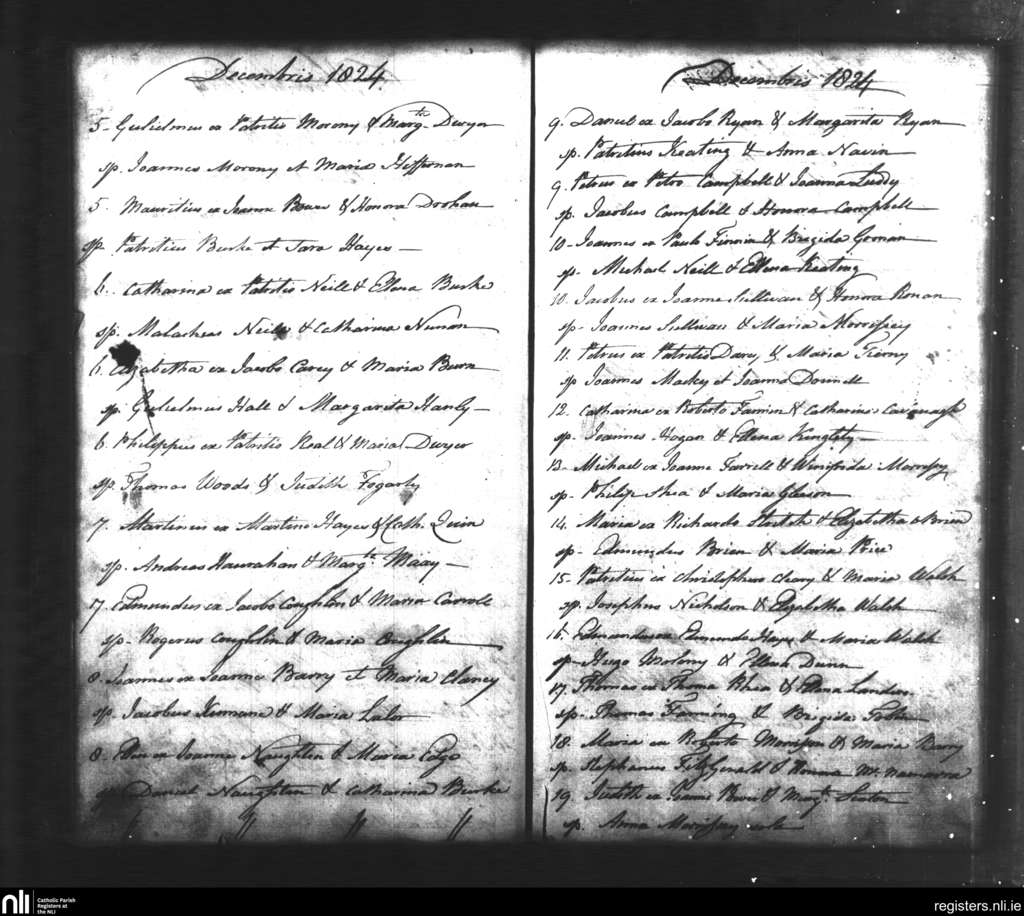 Decembris 1824
5- Gulielmus ex Patritio Morony & Margtta Dwyer
sp. Joannes Morony et Maria Heffernan
5- Mauritius ex Joanne Bowe & Honora Doohan
sp. Patritius Burke et Sara Hayes
6. Catharina ex Patritio Neill & Ellena Burke
sp. Malachias Neill & Catharina Nunan
6. Elizabetha ex Jacobo Carey & Maria Burn
sp. Gulielmus Hall & Margarita Hanly
6. Philippus ex Patritio Real & Maria Dwyer
sp. Thomas Woods & Judith Fogarty
7. Martinus ex Martino Hayes & Cath. Quin
sp. Andreas Hanrahan & Margta
7. Edmundus ex Jacobo Coughlen & Maria Carroll
sp. Rogerus Coughlin & Maria Coughlin
8. Joannes ex Joanne Barry et Maria Clancy
sp. Jacobus & Maria Lalor
8. ex Joanne Naughten & Maria
sp. Daniel Naughten & Catharina Burke
Decembris 1824
9. Daniel ex Jacobo Ryan & Margarita Ryan
sp. Patritius Keating & Anna Navin
9. Petrus ex Petro Campbell & Joanna Luddy
sp. Jacobus Campbell & Honora Campbell
10- Joannes ex Paulo Finnin & Brigida
sp. Michael Neill & Ellena Keating
10. Jacobus ex Joanne Sullivan & Honora Ronan
sp- Joannes Sullivan & Maria Morrissey
11. Petrus ex Patritio Darcy & Maria Tierny
sp Joannes Mackey et Joanna Donnell
12. Catharina ex Roberto & Catharina Cavanagh
sp. Joannes Hogan & Ellena
13- Michael ex Joanne Farrell & Winifrida Morrissy
sp- Philip Shea & Maria Gleeson
14. Maria ex Richardo & Elizabetha O Brien
sp- Edmundus Brien & Maria Price
15- Patritius ex Christophero Cleary & Maria Walsh
sp. Josephus Nicholson & Elizabetha Walsh
16. Edmundus ex Edmundo Hayes & Maria Walsh
sp- Hugo Molony & Dunn
17. Thomas ex Thoma Rhea & Ellena Landers
sp- Thomas Fanning & Brigida Tobin
18. Maria ex Roberto Morrissey & Maria Barry
sp. Stephanus FitzGerald & Honora McNamarra
19. Judith ex Joanne Bowe & Margta Sexton
sp. Anna Morrissey sola
nli Catholic Parish
Registers at
the NLI
registers.nli.ie